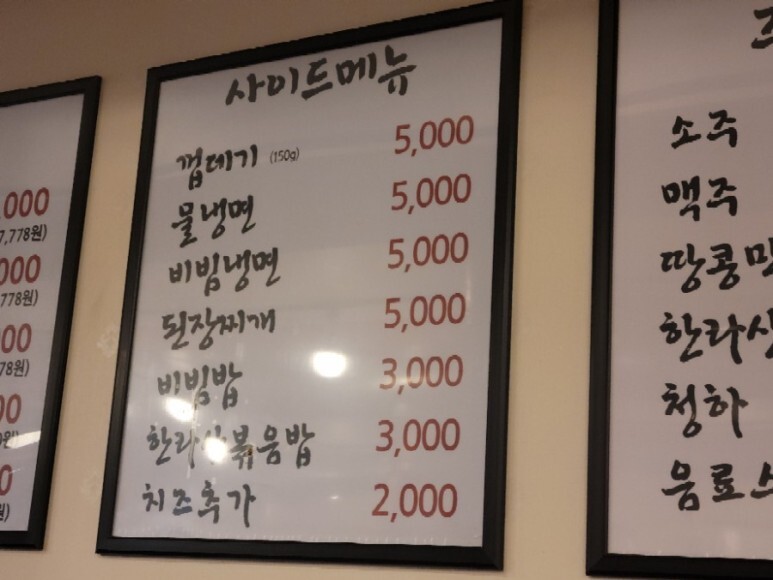 ,000
7,778원)
000
778원)
00
78원)
00
원)
0
원)
사이드메뉴
껍데기 (150g) 5,000
물냉면 5,000
비빔냉면 5,000
된장찌개 5,000
비빔밥 3,000
한라산볶음밥 3,000
치즈추가 2,000
소주
맥주
땅콩
한라산
청하
음료